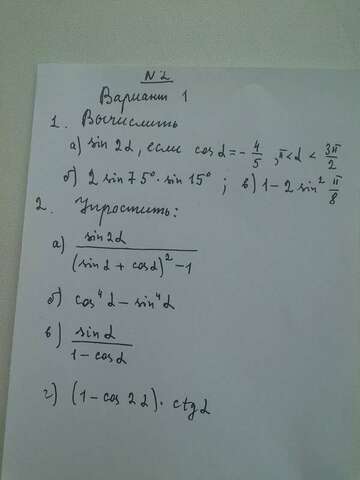 N 2
Вариант 1
1. Вычислить
а) sin 2α, если cos α = - 4/5, π < α < 3π/2
б) 2 sin 75° · sin 15° ; в) 1 - 2 sin² π/8
2. Упростить:
а) sin 2α / (sin α + cos α)² - 1
б) cos⁴ α - sin⁴ α
в) sin α / 1 - cos α
г) (1 - cos 2α) · ctg α